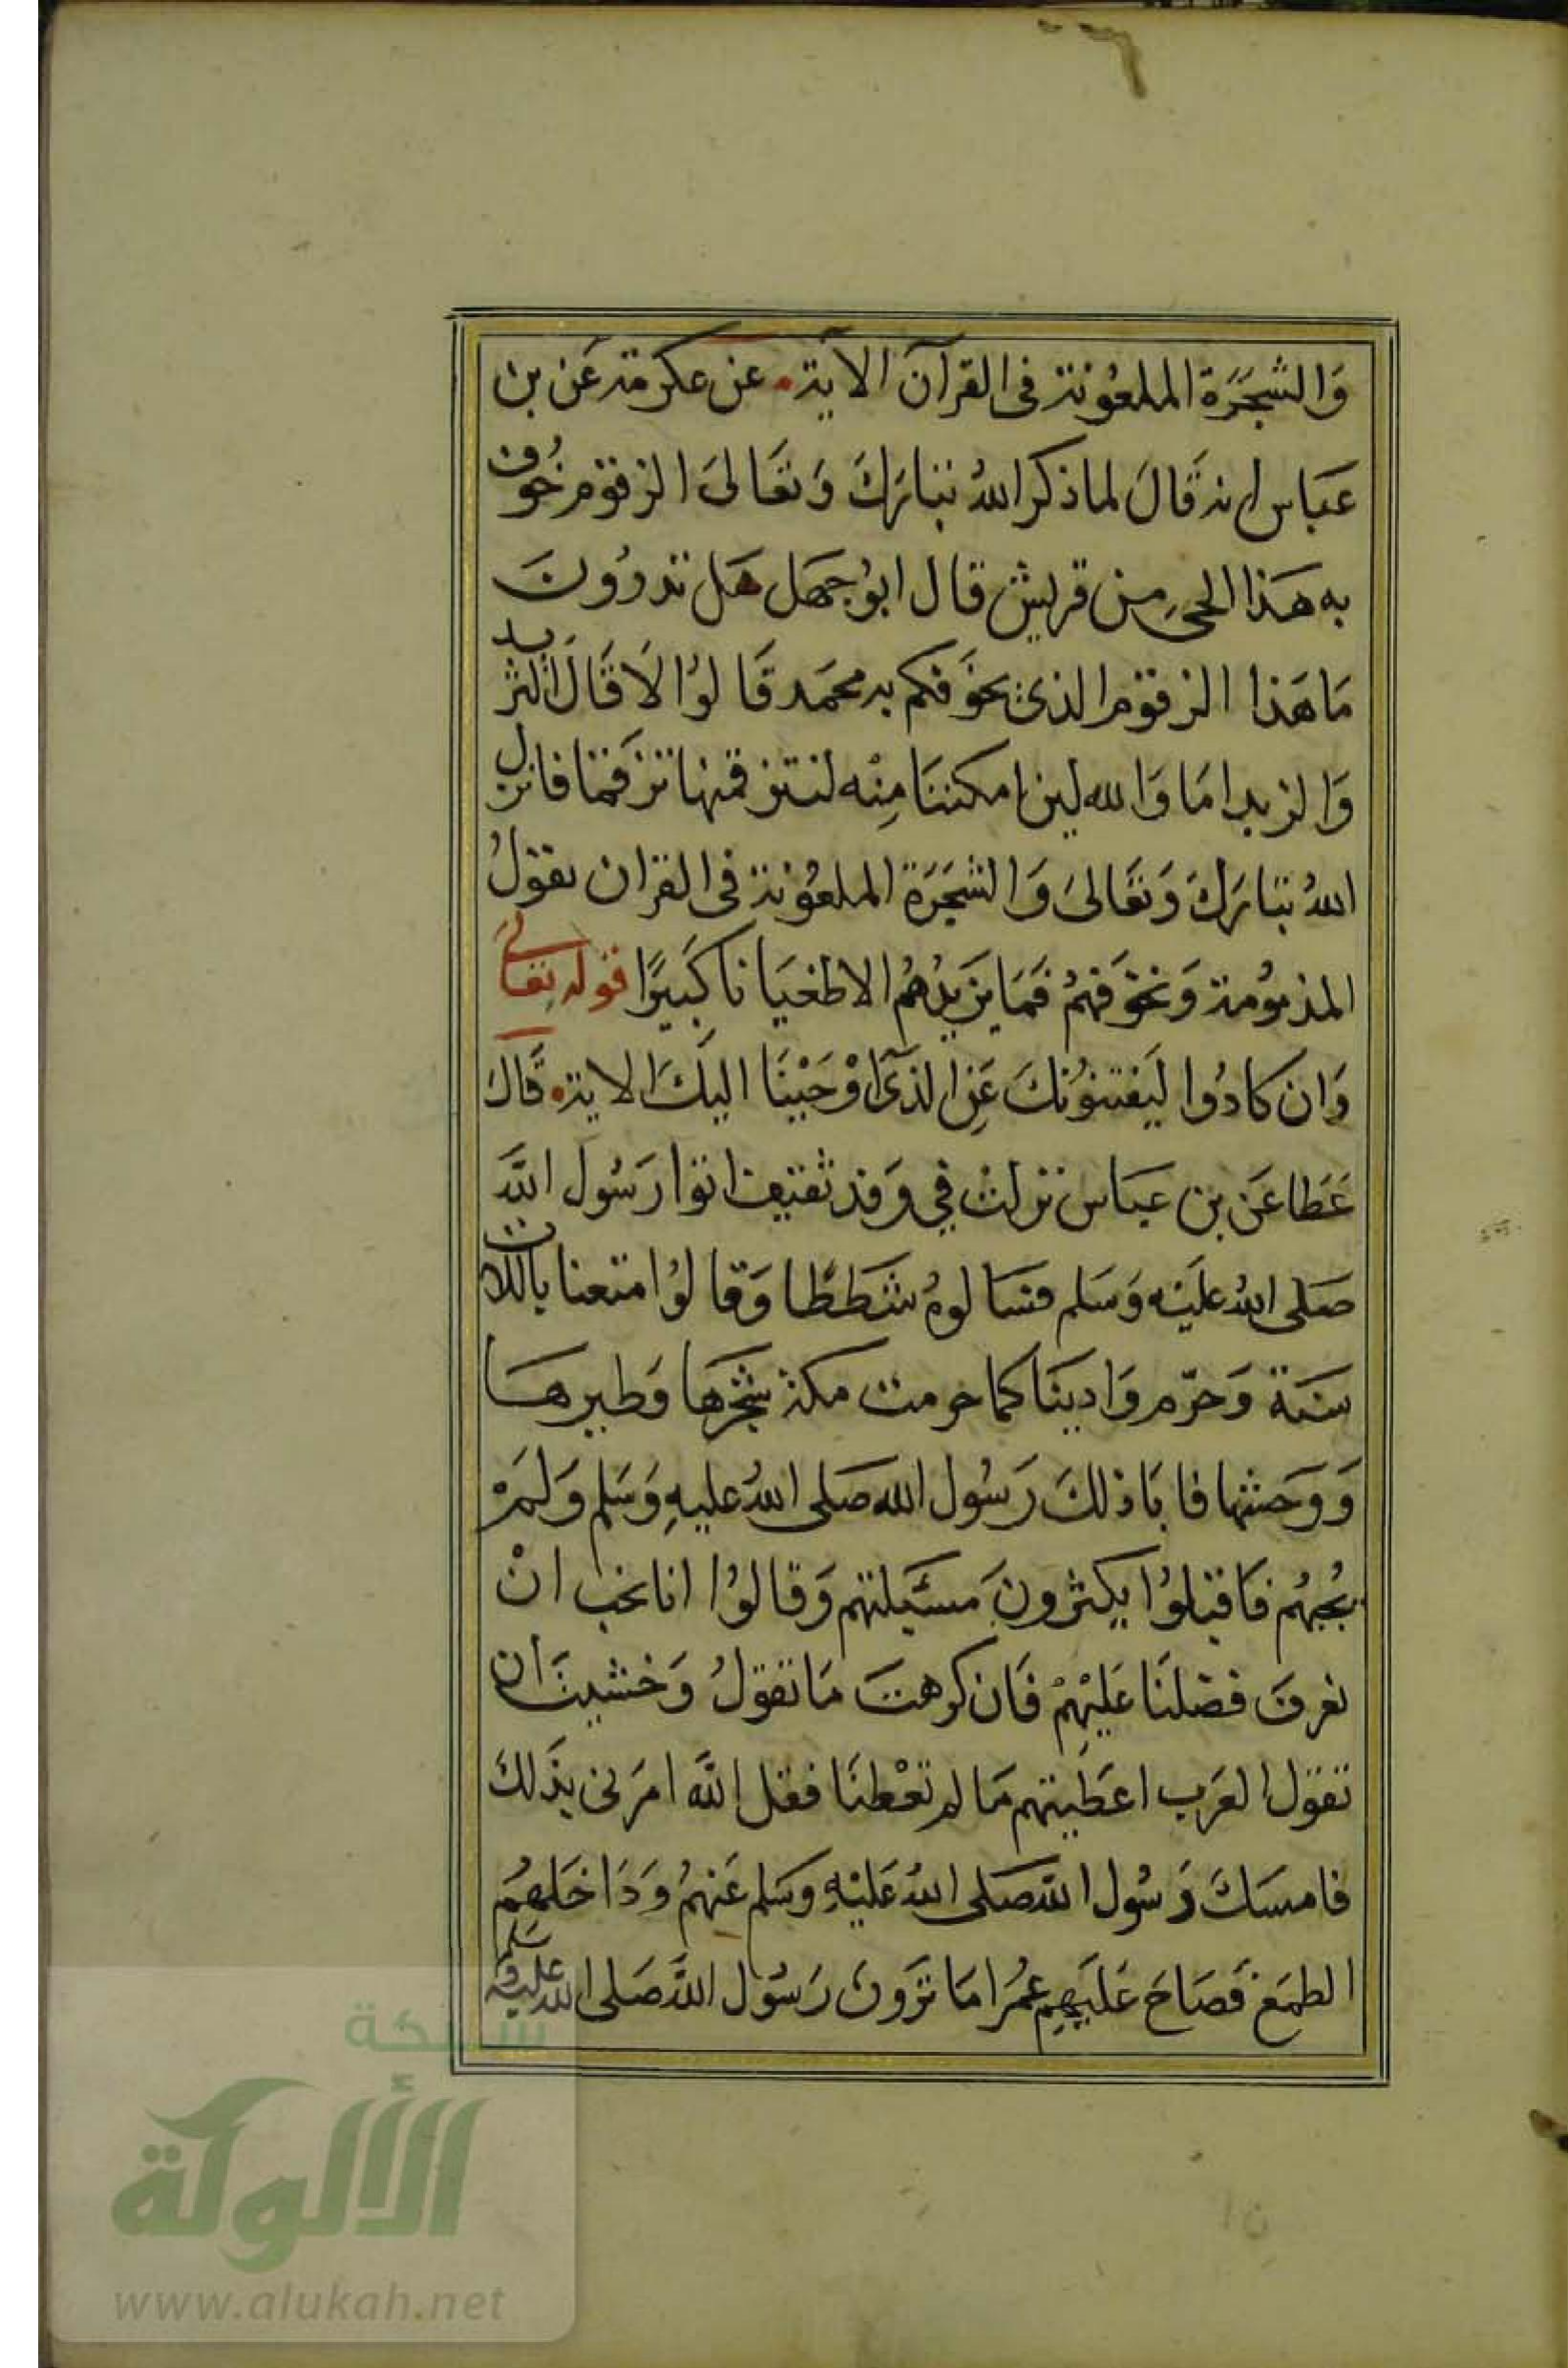 وَالشجَرَة الملعُونة فى القرآن الآية • عن عكرمة عَن بن
عَباس انه قَالَ لما ذكر اللهُ تبَارَكَ وَتعَالىَ الزقوم خُوف
به هَذا الحىِ من قريش قال ابوُجهَل هَل تدروُنَ
مَا هَذا الزقوم الذى يخوَفكم به محمَد قَالوُا لاَ قَالَ الثريد
وَالزبد امَا وَالله لين امكننَا مِنْه لنتزقمنها تزقمَا فانزل
اللهُ تبَارَكَ وَتعَالىَ وَالشجَرَة الملعُونة فى القران يقولُ
المذموُمة وَنخوَفهمُ فمَا يزَيدُهمُ الا طغيَانا كَبَيرًا قوله تعَالىَ
وَان كادُوا لَيَفتنوُنكَ عَنِ الذىَ اوْحَيْنَا اليكَ الاية • قَالَ
عَطا عَن بن عبَاس نزلتْ فِي وَفد ثقيف اتوا رَسُول اللَّه
صَلى اللهُ علَيْه وَسَلم فسَالوهُ شَطَطًا وَقالوُا متعنا باللات
سَنَة وَحرّم وَاديَنَا كما حرمت مكة شجَرهَا وَطيرهَا
وَوَحشها فابَا ذلكَ رَسُول الله صَلى اللهُ عليهِ وَسَلم وَلمَ
يُجبهُم فاقبلوُا يكثروُنَ مسَيلتهم وَقالوُا انا نحب انْ
تعرف فضلنَا عَليْهمْ فَان كرهتَ مَا نقولُ وَخشيتَ ان
تقول العَرب اعَطيتهم مَا لم تعْطنَا فقل اللَّه امَرَنى بذَلكَ
فامسَكَ رَسُول الله صَلى اللهُ عَليْهِ وَسَلم عَنهمُ وَدَاخَلهمُ
الطمَع فَصَاحَ عَليَهِم عمُر امَا ترَونَ رَسُول اللَّه صَلى الله عليه وسَلم
شبكة
الألوكة
www.alukah.net